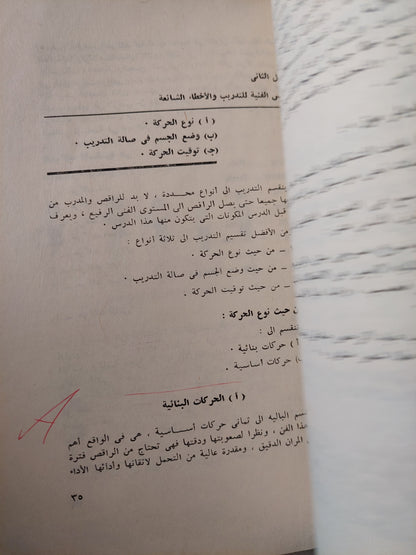 الثانى
الفنية للتدريب والأخطاء الشائعة
( أ ) نوع الحركة ٠
(ب) وضع الجسم فى صالة التدريب ٠
(جـ) توقيت الحركة ٠
ينقسم التدريب الى أنواع محددة ، لا بد للراقص والمدرب من
جميعا حتى يصل الراقص الى المستوى الفنى الرفيع ، ويعرف
قبل الدرس المكونات التى يتكون منها هذا الدرس ٠
من الأفضل تقسيم التدريب الى ثلاثة أنواع :
ــ من حيث نوع الحركة ٠
ــ من حيث وضع الجسم فى صالة التدريب ٠
ــ من حيث توقيت الحركة ٠
حيث نوع الحركة :
تنقسم الى :
أ ) حركات بنائية ٠
ب) حركات أساسية ٠
( أ ) الحركات البنائية
الباليه الى ثمانى حركات أساسية ، هى فى الواقع أهم
الفن ، ونظرا لصعوبتها ودقتها فهى تحتاج من الراقص فترة
المران الدقيق ، ومقدرة عالية من التحمل لاتقانها وأدائها الأداء
٣٥